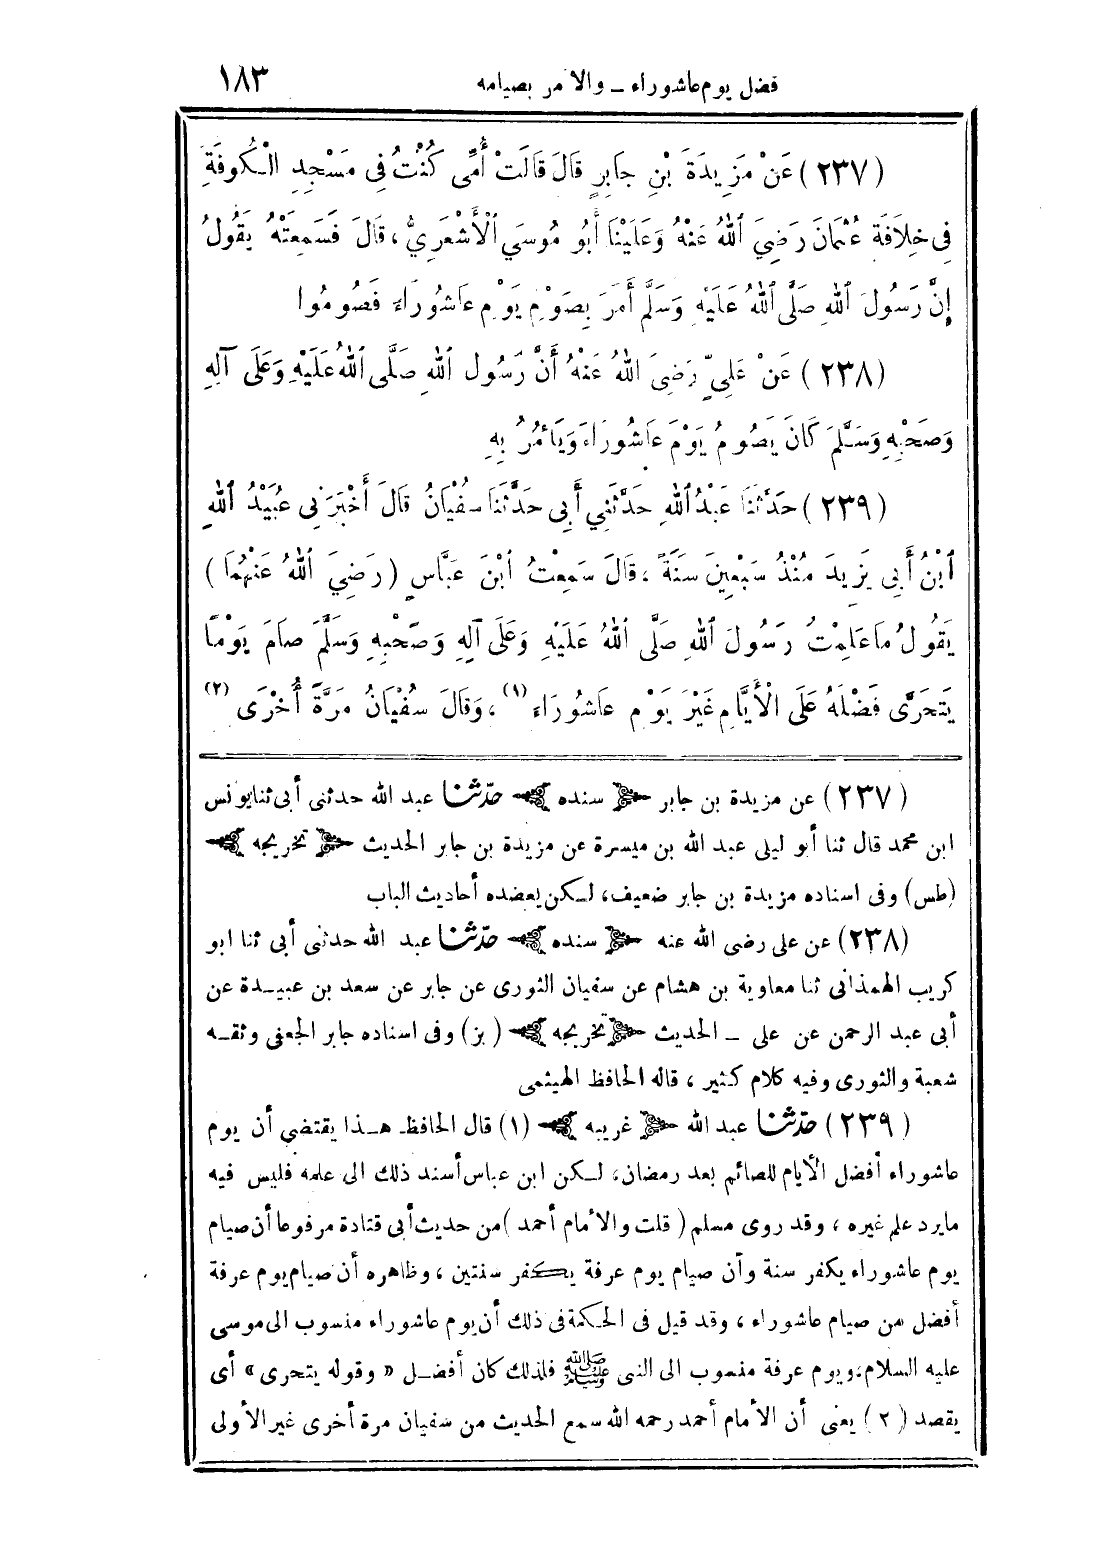 فضل يوم عاشوراء ــ والأمر بصيامه ١٨٣
(٢٣٧) عَنْ مَزِيدَةَ بْنِ جَابِرٍ قَالَ قَالَتْ أُمِّى كُنْتُ فِى مَسْجِدِ الْكُوفَةِ
فِى خِلَافَةِ عُثْمَانَ رَضِيَ اللهُ عَنْهُ وَعَلَيْنَا أَبُو مُوسَى الْأَشْعَرِيُّ، قَالَ فَسَمِعَتْهُ يَقُولُ
إِنَّ رَسُولَ اللهِ صَلَّى اللهُ عَلَيْهِ وَسَلَّمَ أَمَرَ بِصَوْمِ يَوْمِ عَاشُورَاءَ فَصُومُوا
(٢٣٨) عَنْ عَلِيٍّ رَضِيَ اللهُ عَنْهُ أَنَّ رَسُولَ اللهِ صَلَّى اللهُ عَلَيْهِ وَعَلَى آلِهِ
وَصَحْبِهِ وَسَلَّمَ كَانَ يَصُومُ يَوْمَ عَاشُورَاءَ وَيَأْمُرُ بِهِ
(٢٣٩) حَدَّثَنَا عَبْدُ اللهِ حَدَّثَنِي أَبِى حَدَّثَنَا سُفْيَانُ قَالَ أَخْبَرَنِى عُبَيْدُ اللهِ
ابْنُ أَبِى يَزِيدَ مُنْذُ سَبْعِينَ سَنَةً، قَالَ سَمِعْتُ ابْنَ عَبَّاسٍ (رَضِيَ اللهُ عَنْهُمَا)
يَقُولُ مَا عَلِمْتُ رَسُولَ اللهِ صَلَّى اللهُ عَلَيْهِ وَعَلَى آلِهِ وَصَحْبِهِ وَسَلَّمَ صَامَ يَوْمًا
يَتَحَرَّى فَضْلَهُ عَلَى الْأَيَّامِ غَيْرَ يَوْمِ عَاشُورَاءَ (١)، وَقَالَ سُفْيَانُ مَرَّةً أُخْرَى (٢)
(٢٣٧) عن مزيدة بن جابر ﴿ سنده ﴾ حدّثنا عبد الله حدثنى أبى ثنا يونس
ابن محمد قال ثنا أبو ليلى عبد الله بن ميسرة عن مزيدة بن جابر الحديث ﴿ تخريجه ﴾
(طس) وفى اسناده مزيدة بن جابر ضعيف، لكن يعضده أحاديث الباب
(٢٣٨) عن على رضى الله عنه ﴿ سنده ﴾ حدّثنا عبد الله حدثنى أبى ثنا ابو
كريب الهمذانى ثنا معاوية بن هشام عن سفيان الثورى عن جابر عن سعد بن عبيدة عن
أبى عبد الرحمن عن على ــ الحديث ﴿ تخريجه ﴾ (بز) وفى اسناده جابر الجعفى وثقه
شعبة والثورى وفيه كلام كثير، قاله الحافظ الهيثمى
(٢٣٩) حدّثنا عبد الله ﴿ غريبه ﴾ (١) قال الحافظ هذا يقتضي أن يوم
عاشوراء أفضل الأيام للصائم بعد رمضان، لكن ابن عباس أسند ذلك الى علمه فليس فيه
مايرد علم غيره، وقد روى مسلم (قلت والأمام أحمد) من حديث أبى قتادة مرفوعا أن صيام
يوم عاشوراء يكفر سنة وأن صيام يوم عرفة يكفر سنتين، وظاهره أن صيام يوم عرفة
أفضل من صيام عاشوراء، وقد قيل فى الحكمة فى ذلك أن يوم عاشوراء منسوب الى موسى
عليه السلام، ويوم عرفة منسوب الى النبى ﷺ فلذلك كان أفضل « وقوله يتحرى » أى
يقصد (٢) يعنى أن الأمام أحمد رحمه الله سمع الحديث من سفيان مرة أخرى غير الأولى